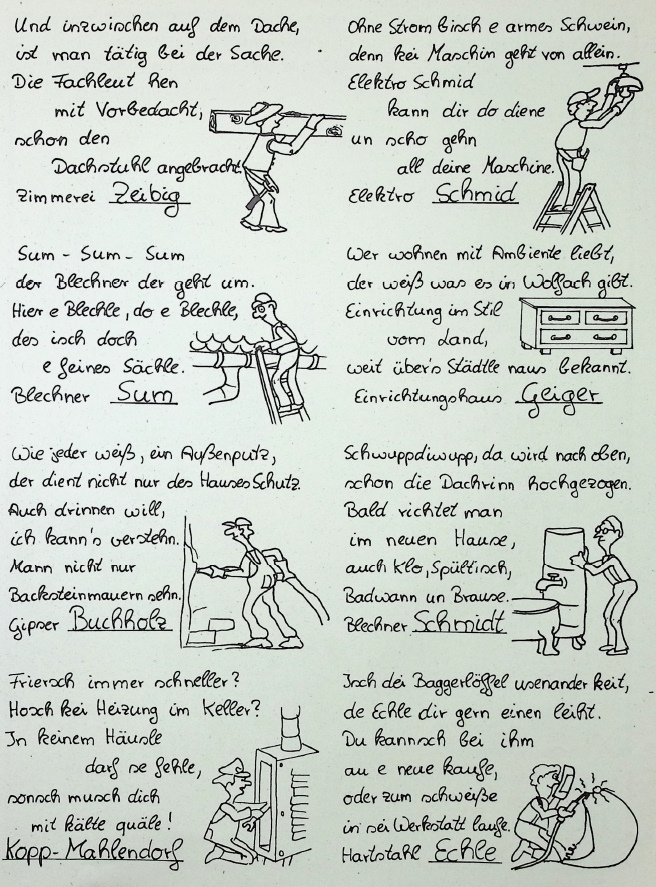 Und inzwischen auf dem Dache,
ist man tätig bei der Sache.
Die Fachleut hen
mit Vorbedacht,
schon den
Dachstuhl angebracht.
Zimmerei Zeibig
Sum - Sum - Sum
der Blechner der geht um.
Hier e Blechle, do e Blechle,
des isch doch
e feines Sächle.
Blechner Sum
Wie jeder weiß, ein Außenputz,
der dient nicht nur des Hauses Schutz.
Auch drinnen will,
ich kann's verstehn.
Mann nicht nur
Backsteinmauern sehn.
Gipser Buchholz
Friersch immer schneller?
Hosch kei Heizung im Keller?
In keinem Häusle
darf se fehle,
sonsch musch dich
mit kälte quäle!
Kopp-Mahlendorf
Ohne Strom bisch e armes Schwein,
denn kei Maschin geht von allein.
Elektro Schmid
kann dir do diene
un scho gehn
all deine Maschine.
Elektro Schmid
Wer wohnen mit Ambiente liebt,
der weiß was es in Wolfach gibt.
Einrichtung im Stil
vom Land,
weit über's Städtle naus bekannt.
Einrichtungshaus Geiger
Schwuppdiwupp, da wird nach oben,
schon die Dachrinn hochgezogen.
Bald richtet man
im neuen Hause,
auch Klo, Spültisch,
Badwann un Brause.
Blechner Schmidt
Isch dei Baggerlöffel usenander keit,
de Echle dir gern einen leiht.
Du kannsch bei ihm
au e neue kaufe,
oder zum schweiße
in sei Werkstatt laufe.
Hartstahl Echle